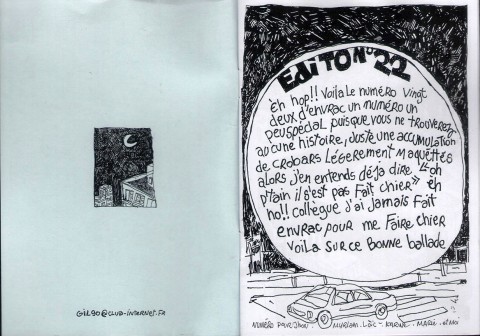 GILGO@CLUB-INTERNET.FR
EDITO N°22
Eh hop!! Voila Le numéro vingt
deux d'envrac un numéro un
peu spécial puisque vous ne trouverez
aucune histoire, juste une accumulation
de crobars légèrement maquettés
alors j'en entends déja dire "oh
p'tain il s'est pas fait chier" eh
ho!! collègue j'ai jamais fait
envrac pour me faire chier
voila sur ce bonne ballade
NUMÉRO POUR JHON MYRIAM - LOÏC - KARINE - MARIN - et MOI